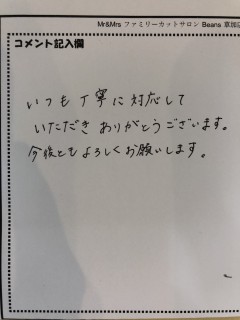 Mr&Mrs ファミリーカットサロン Beans 草加
コメント記入欄
いつも丁寧に対応して
いただきありがとうございます。
今後ともよろしくお願いします。